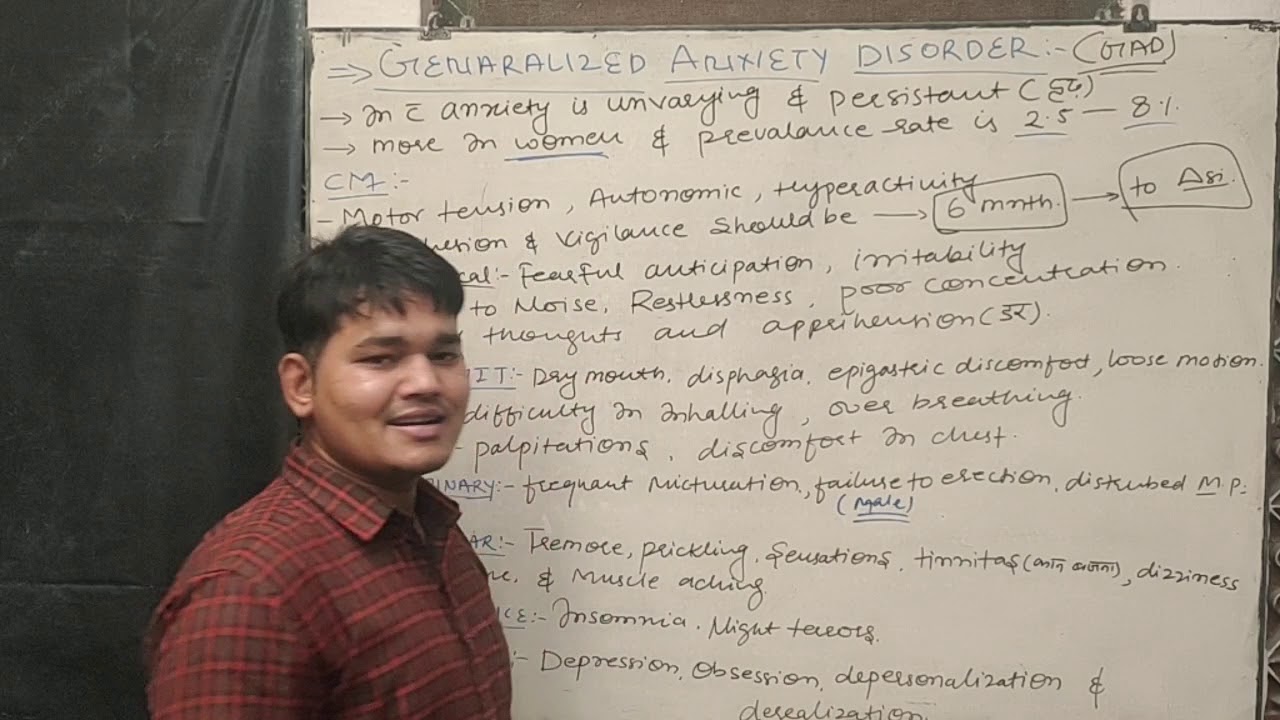 ⇒ GENARALIZED ANXIETY DISORDER:- (GAD)
→ In c̅ anxiety is unvarying & persistant (हठ)
→ more in women & prevalance rate is 2.5 — 8%.
CM:-
- Motor tension, Autonomic, Hyperactivity
hension & Vigilance should be → 6 mnth. → to Δsi.
cal:- fearful anticipation, irritability
to Noise, Restlessness, poor concentration.
thoughts and apprihension (डर).
IT:- Dry mouth, disphagia, epigastric discomfort, loose motion.
difficulty in inhalling, over breathing.
- palpitations, discomfort in chest.
INARY:- frequant micturation, failure to erection, disturbed M.P.
(Male)
AR:- Tremore, prickling, sensations, tinnitas (कान बजना), dizziness
& Muscle aching.
CE:- Insomnia, Night terrors.
:- Depression, Obsession, depersonalization &
derealization.